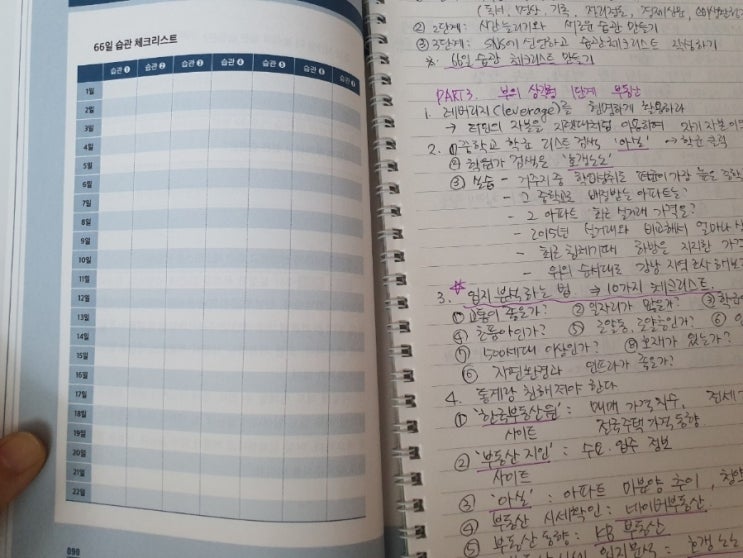 66일 습관 체크리스트
습관 ❶ 습관 ❷ 습관 ❸ 습관 ❹ 습관 ❺ 습관 ❻ 습관 ❼
1일
2일
3일
4일
5일
6일
7일
8일
9일
10일
11일
12일
13일
14일
15일
16일
17일
18일
19일
20일
21일
22일
090
(독서, 명상, 기록,
② 2단계: 시간 늘리기와 새로운 습관 만들기
③ 3단계: SNS에 선언하고 습관 체크리스트 작성하기
※ 66일 습관 체크리스트 만들기
PART3. 부의 삼각형 1단계 부동산
1. 레버리지(leverage)를 현명하게 활용하라
→ 타인의 자본을 지렛대처럼 이용하여 자기 자본 이익
2. ① 중학교 학군 리스트 검색 '아실' → 학군 클릭
② 학원가 검색은 '호갱노노'
③ 실습 - 거주지 중 학업성취도 평균이 가장 높은 중학
- 그 중학교로 배정받는 아파트는?
- 그 아파트 최근 실거래 가격은?
- 2015년 실거래와 비교해서 얼마나
- 최근 침체기때 하방을 지지한 가격
- 위의 순서대로 강남 지역 조사 해보
3. 입지 분석하는 법 ⇒ 10가지 체크리스트
① 교통이 좋은가? ② 일자리가 많은가? ③ 학군
④ 초품아인가? ⑤ 로얄동, 로얄층인가? ⑥
⑦ 500세대 이상인가? ⑧ 호재가 있는가?
⑥ 자연환경과 인프라가 좋은가?
4. 통계랑 친해져야 한다
① '한국부동산원' : 매매 가격지수, 전세가
사이트 전국주택가격동향
② '부동산 지인' : 수요. 입주 정보
사이트
③ '아실' : 아파트 미분양 추이, 청약
④ 부동산 시세확인 : 네이버부동산
⑤ 부동산 동향 : KB 부동산
입지분석 : 호갱노노